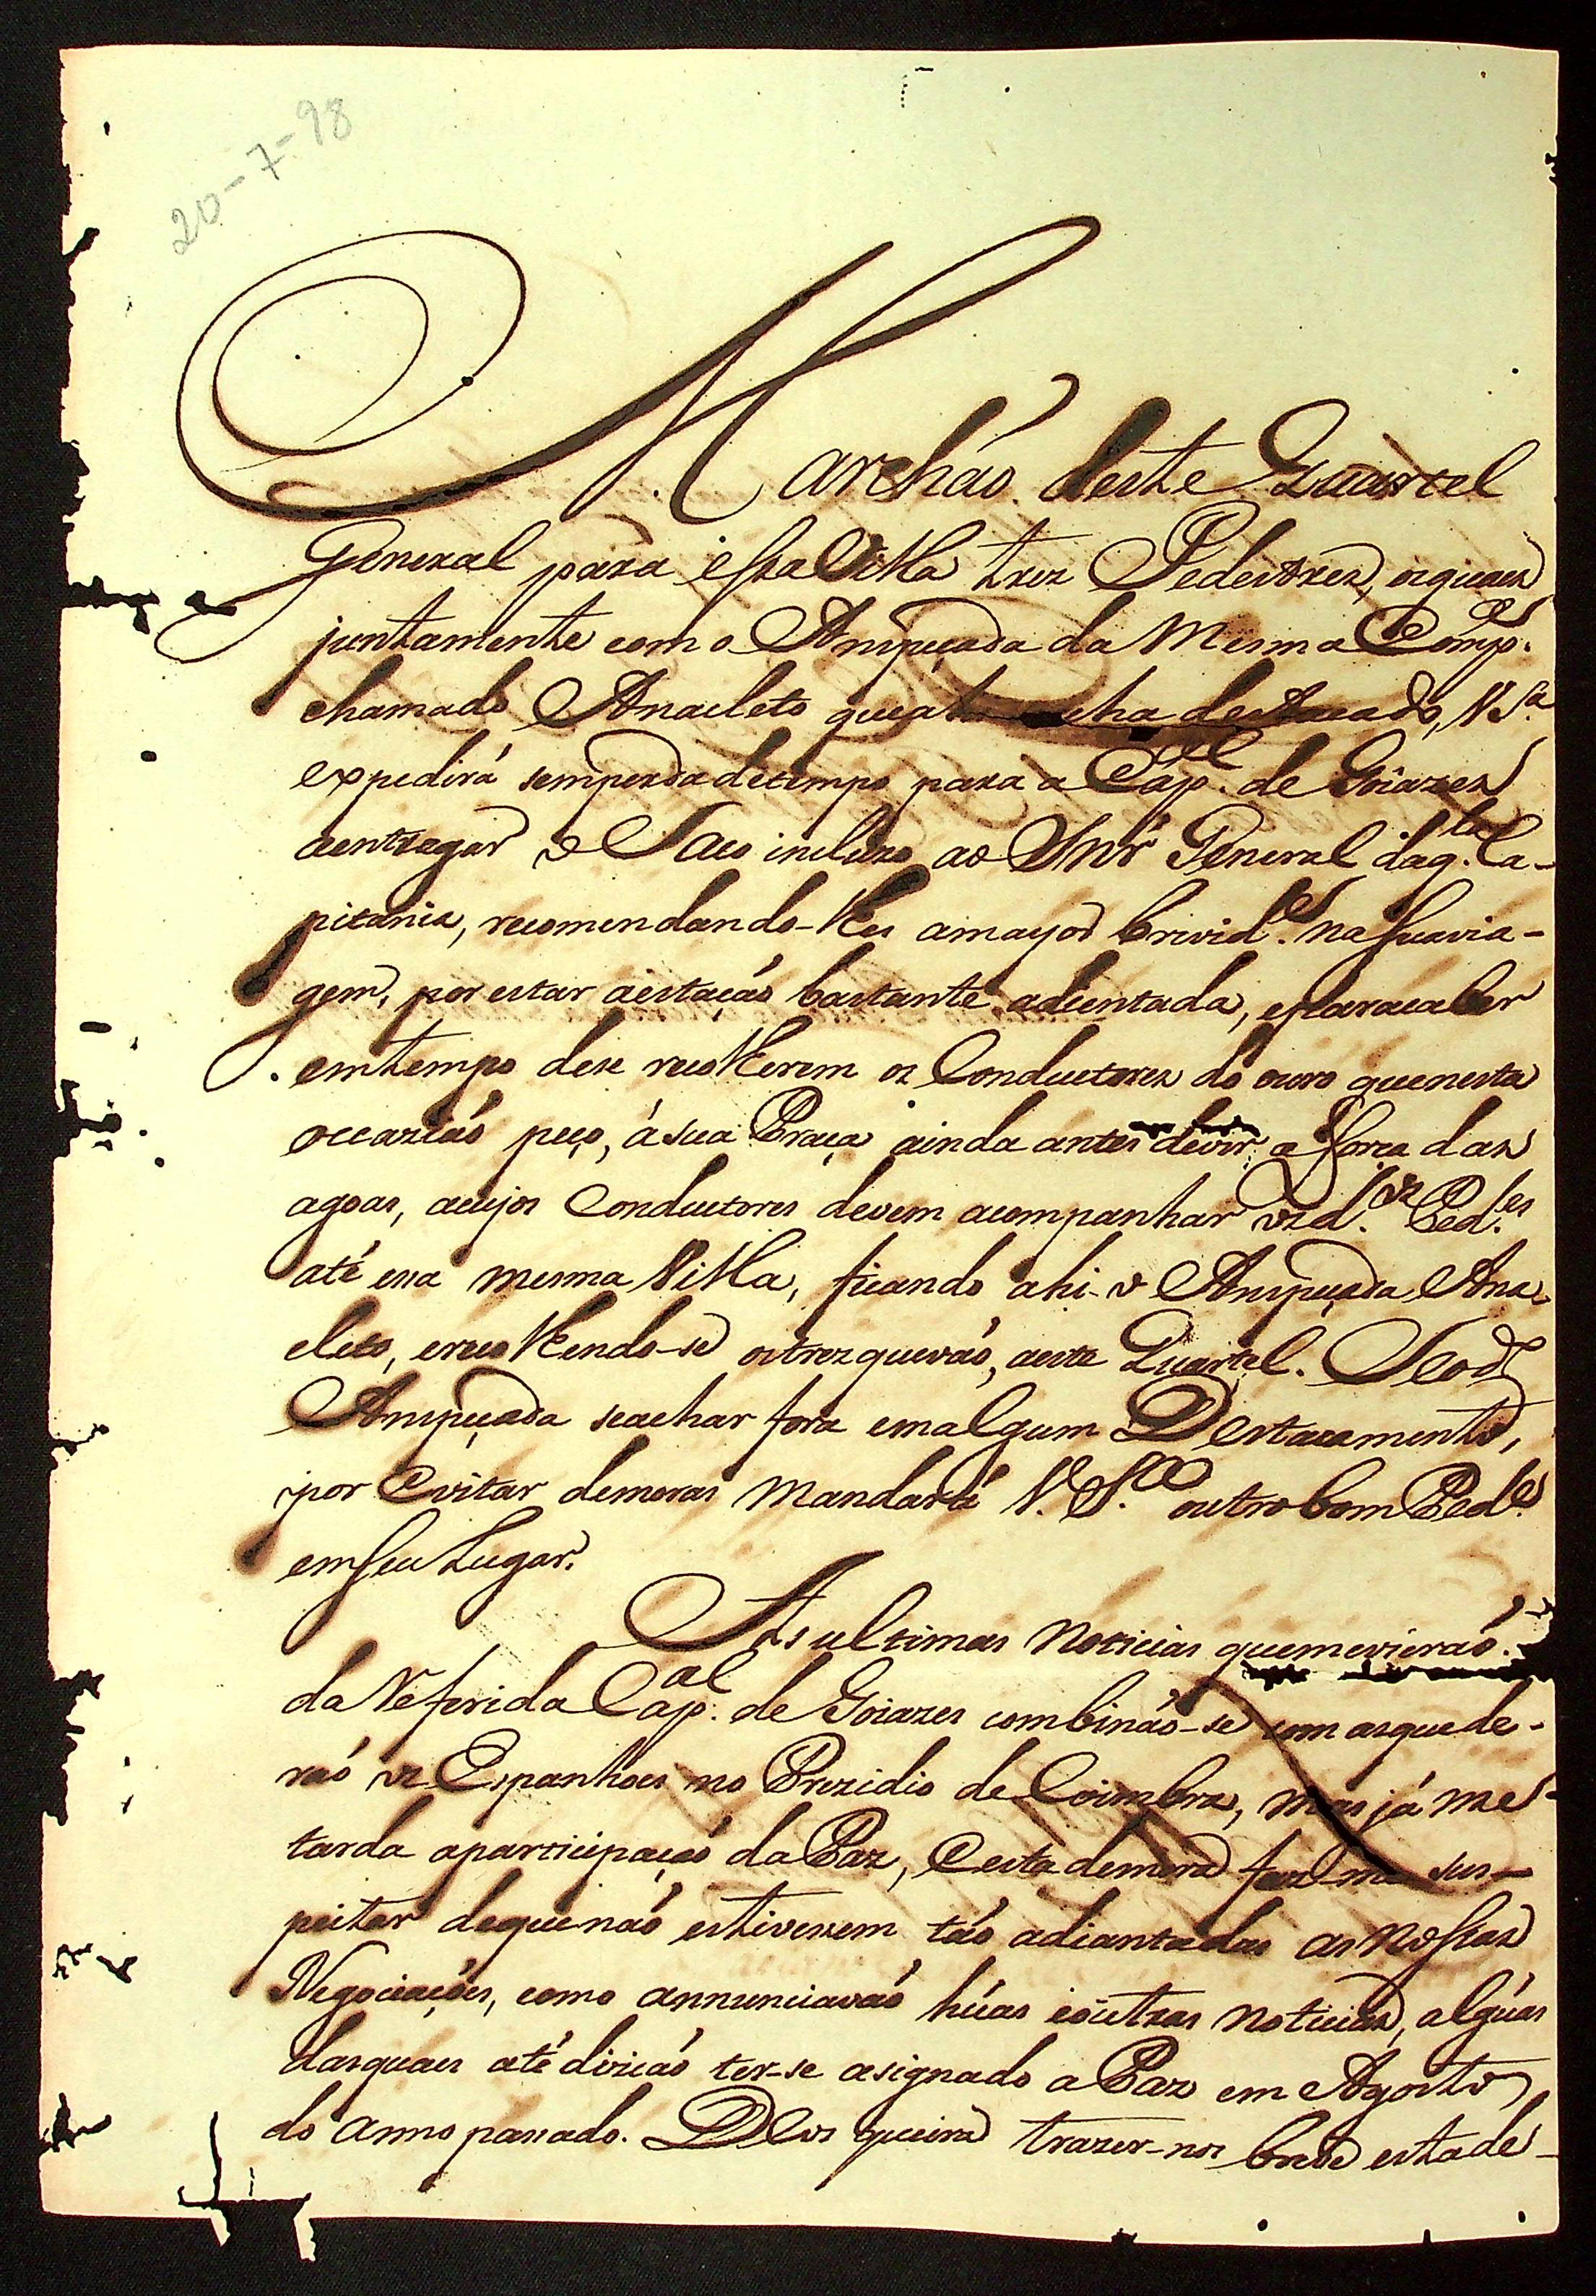 20-7-98
Marcháo deste Quartel
General para essa Villa trez Pedestres, osquaes
juntamente com o Anspeçada da mesma Comp.ª
chamado Anacleto destacado, V S.ª
expedirá semperda detempo para a Cap.al de Goiazes
aentregar o Saco incluzo ao Snr' General daq.la Ca-
pitania, recomendando-lhes amayor brevid.e na sua via-
gem, por estar aestaçáo bastante adientada, eparacaber
emtempo dese recolherem os Conductores do ouro quenesta
occaziáo peço, ásua Praça ainda antes devir a força das
agoas, acujos Conductores devem acompanhar os d.os Ped.es
até essa mesma Villa, ficando ahi o Anspeçada Ana-
cleto, erecolhendo-se ostrezqueváo, aeste Quartel. Se o d.o
Anspeçada seachar fora emalgum Destacamento,
por evitar demoras mandará V. S.ª outro bom Ped.e
emseu Lugar.
As ultimas noticias quemevieráo
da Referida Cap.al de Goiazes combináo-se com asquede-
ráo os Espanhoes no Prezidio de Coimbra, mas já me
tarda aparticipaçáo da Paz, e esta demora faz-me sus-
peitar dequenáo estivessem táo adiantadas as nossas
Negociações, como annunciaváo húas eoutras noticias, algúas
dasquaes até diziáo ter-se asignado a Paz em Agosto
do anno passado. Deos queira trazer-nos breve estade-